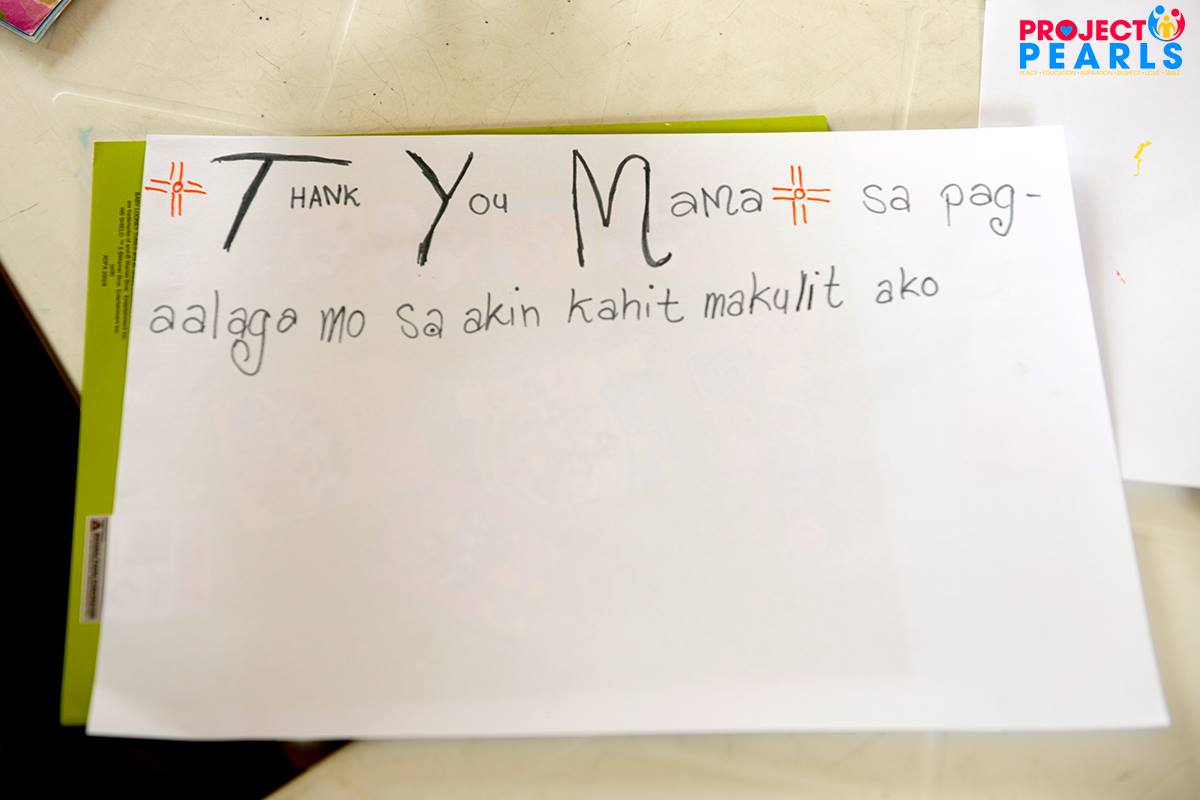 PROJECT
PEARLS
PEACE • EDUCATION • ASPIRATION • RESPECT • LOVE • SMILE
THANK YOU MAMA sa pag-
aalaga mo sa akin kahit makulit ako